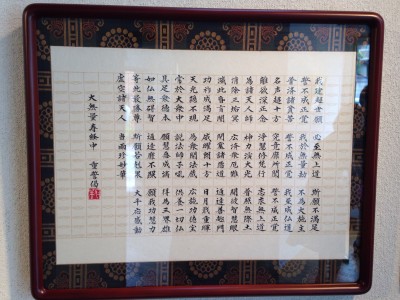 我建超世願 必至無上道 斯願不満足
誓不成正覚 我於無量劫 不為大施主
普済諸貧苦 誓不成正覚 我至成仏道
名声超十方 究竟靡所聞 誓不成正覚
離欲深正念 浄慧修梵行 志求無上道
為諸天人師 神力演大光 普照無際土
消除三垢冥 広済衆厄難 開彼智慧眼
滅此昏盲闇 閉塞諸悪道 通達善趣門
功祚成満足 威曜朗十方 日月戢重暉
天光隠不現 為衆開法蔵 広施功徳宝
常於大衆中 説法師子吼 供養一切仏
具足衆徳本 願慧悉成満 得為三界雄
如仏無礙智 通達靡不照 願我功慧力
等此最勝尊 斯願若剋果 大千応感動
虚空諸天人 当雨珍妙華
大無量寿経中 重誓偈